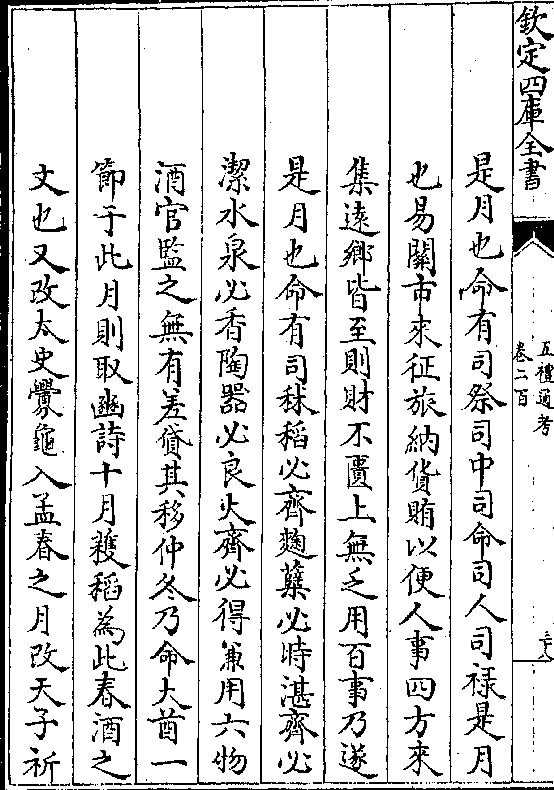 欽定四庫全書
五禮通考
卷二百
是月也命有司祭司中司命司人司祿是月
也易關市來征旅納貨賄以便人事四方來
集遠鄉皆至則財不匱上無乏用百事乃遂
是月也命有司秫稻必齊麴糵必時湛齊必
潔水泉必香陶器必良火齊必得兼用六物
酒官監之無有差貸其移仲冬乃命大酋一
節于此月則取豳詩十月穫稻為此春酒之
文也又改太史釁龜入孟春之月改天子祈